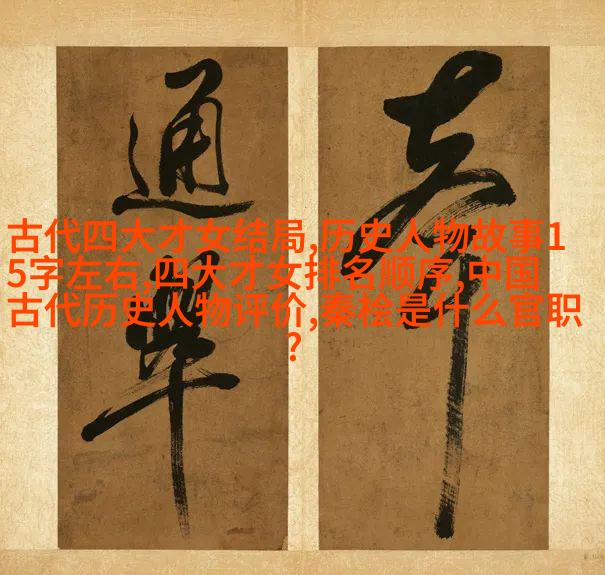 通
古代四大才女结局,历史人物故事1
5字左右,四大才女排名顺序,中国
古代历史人物评价,秦桧是什么官职
?